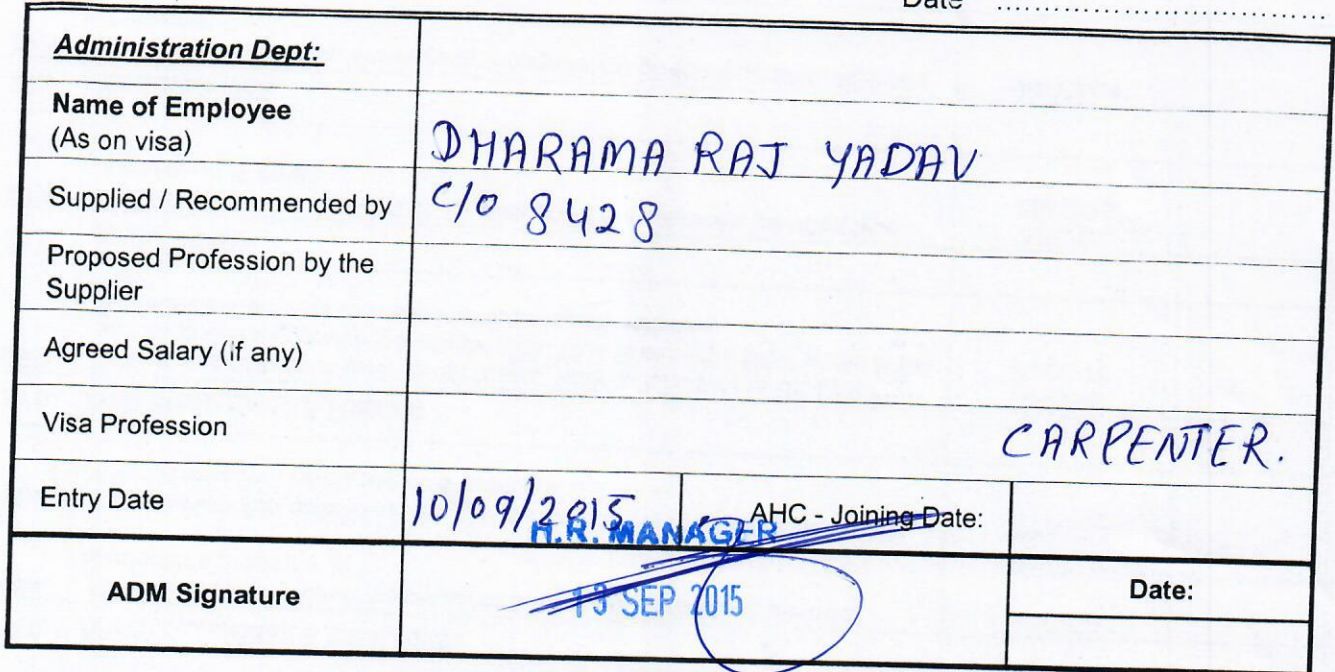 Date ..................................
Administration Dept:
Name of Employee
(As on visa)
DHARAMA RAJ YADAV
Supplied / Recommended by
C/O 8428
Proposed Profession by the
Supplier
Agreed Salary (if any)
Visa Profession
CARPENTER.
Entry Date
10/09/2015
AHC - Joining Date:
H.R. MANAGER
ADM Signature
SEP 2015
Date: